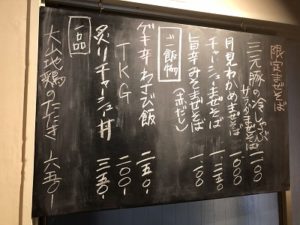 限定まぜそば
三元豚の冷しゃぶ
サラダまぜそば 一一〇〇
月見わかめまぜそば 一〇〇〇
チャーシューまぜそば
旨辛みそまぜそば 一一〇〇
ご飯物
ゲキ辛わさび飯 二五〇-
TKG 二〇〇-
炙りチャーシュー丼 三五〇-
一品
大山地鶏のたたき 六五〇-